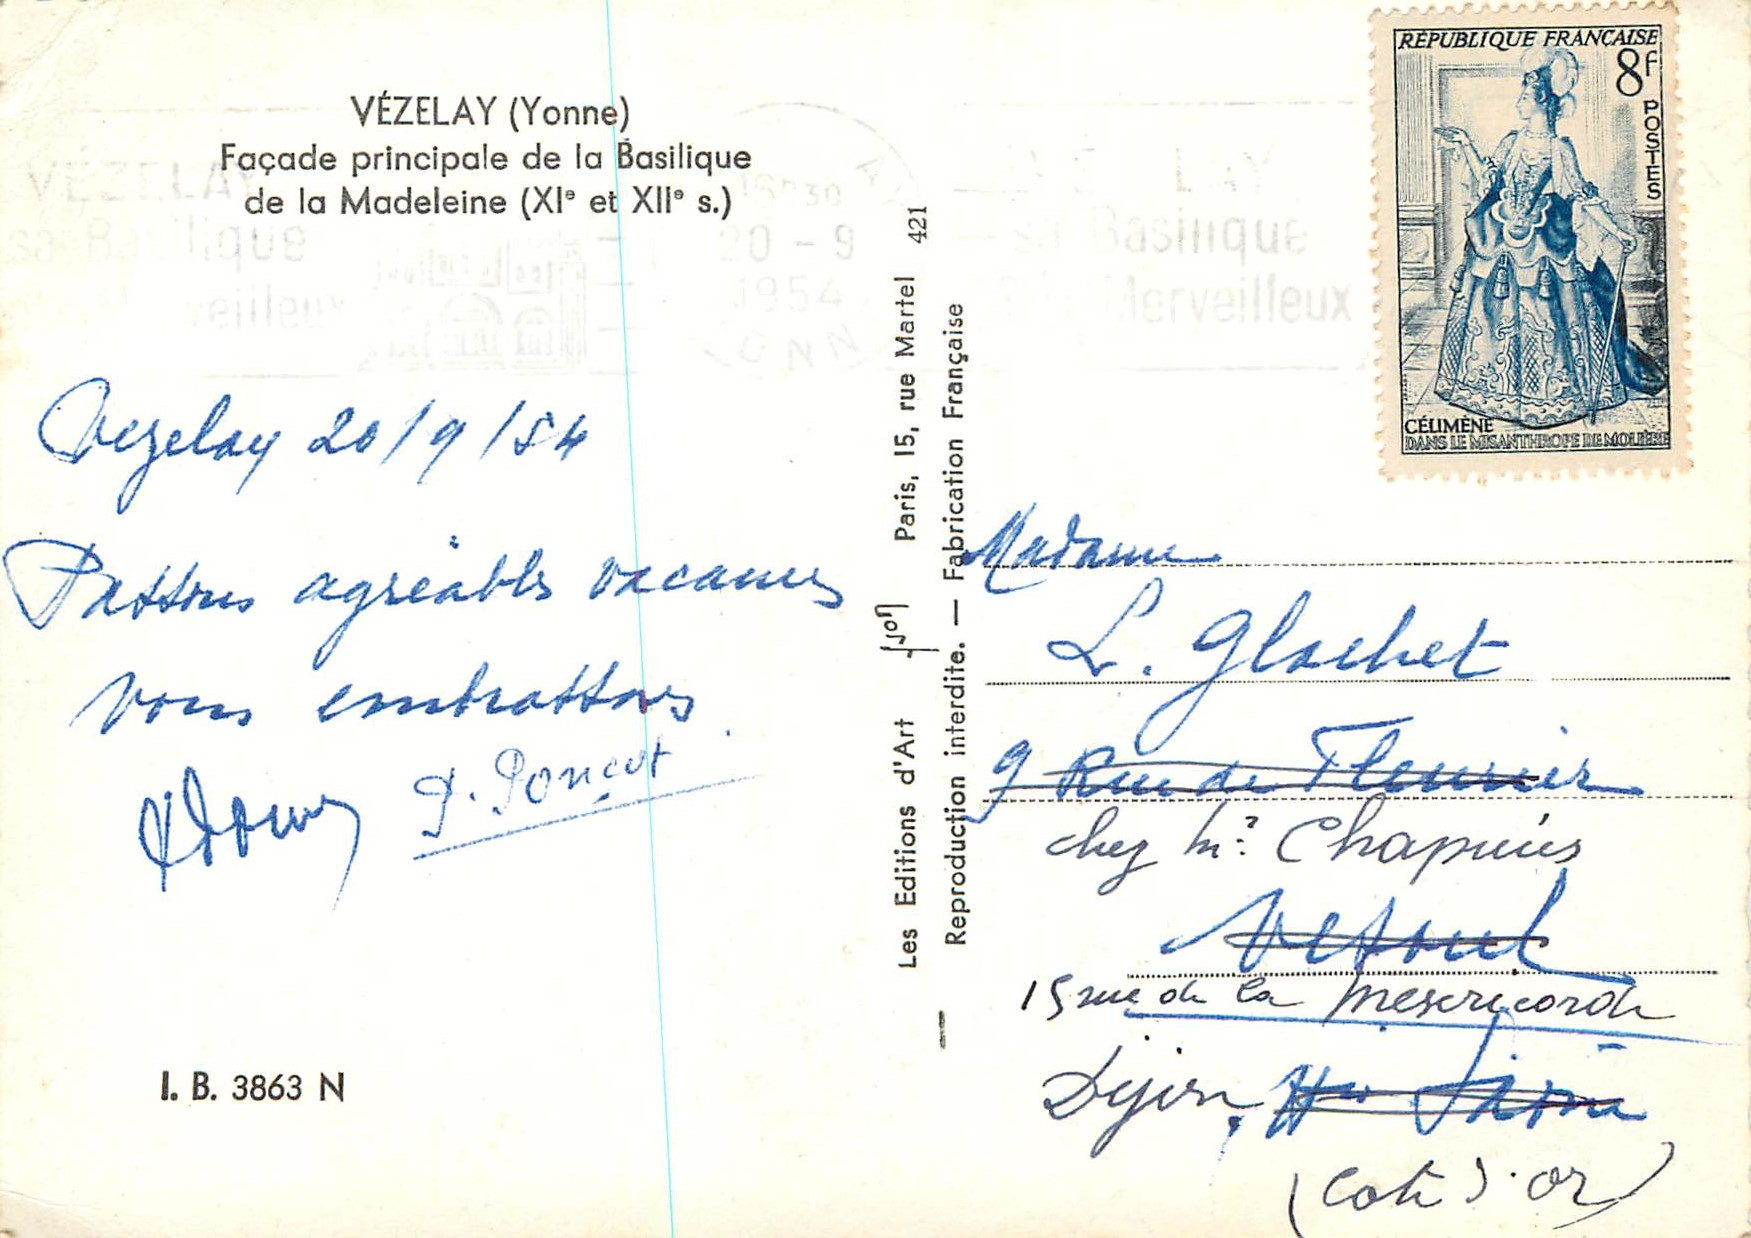 VÉZELAY (Yonne)
Façade principale de la Basilique
de la Madeleine (XIe et XIIe s.)
VÉZELAY
sa Basilique
Merveilleux
16H30
20 - 9
1954
YONNE
Basilique
Merveilleux
RÉPUBLIQUE FRANÇAISE
8F
POSTES
CÉLIMÈNE
DANS LE MISANTHROPE DE MOLIÈRE
Vezelay 20/9/54
Passons agréables vacances
vous embrassons
P. Ponçot
I. B. 3863 N
Les Editions d'Art Yvon Paris, 15, rue Martel 421
Reproduction interdite. — Fabrication Française
Madame
L. Glachet
9 Rue de Fleurier
chez Mr Chapuis
Vesoul
15 rue de la Misericorde
Dijon, Hte Saône
(Cote d'or)